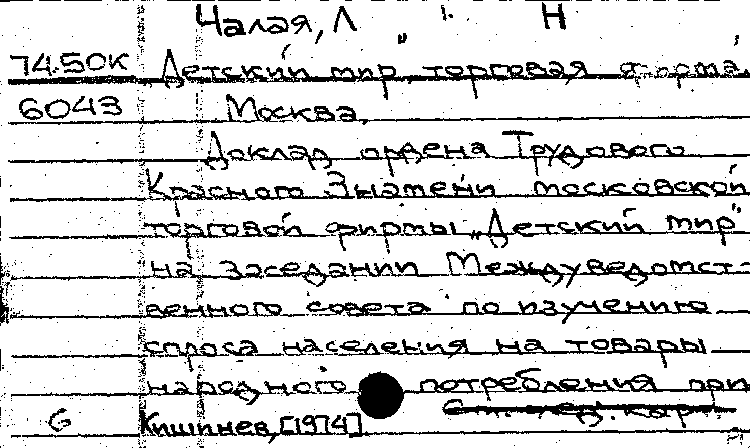 Чалая, Л. Н
74.50К „Детский мир", торговая фирма,
6043 Москва.
Доклад ордена Трудового
Красного Знамени московской
торговой фирмы „Детский мир"
на заседании Междуведомст-
венного совета по изучению
спроса населения на товары
народного потребления при
6 Кишинев, [1974]